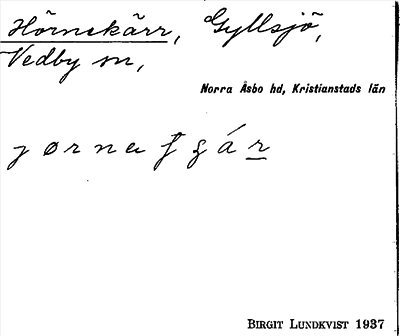 Hörnekärr, Gyllsjö,
Vedby sn,
Norra Åsbo hd, Kristianstads län
BIRGIT LUNDKVIST 1937